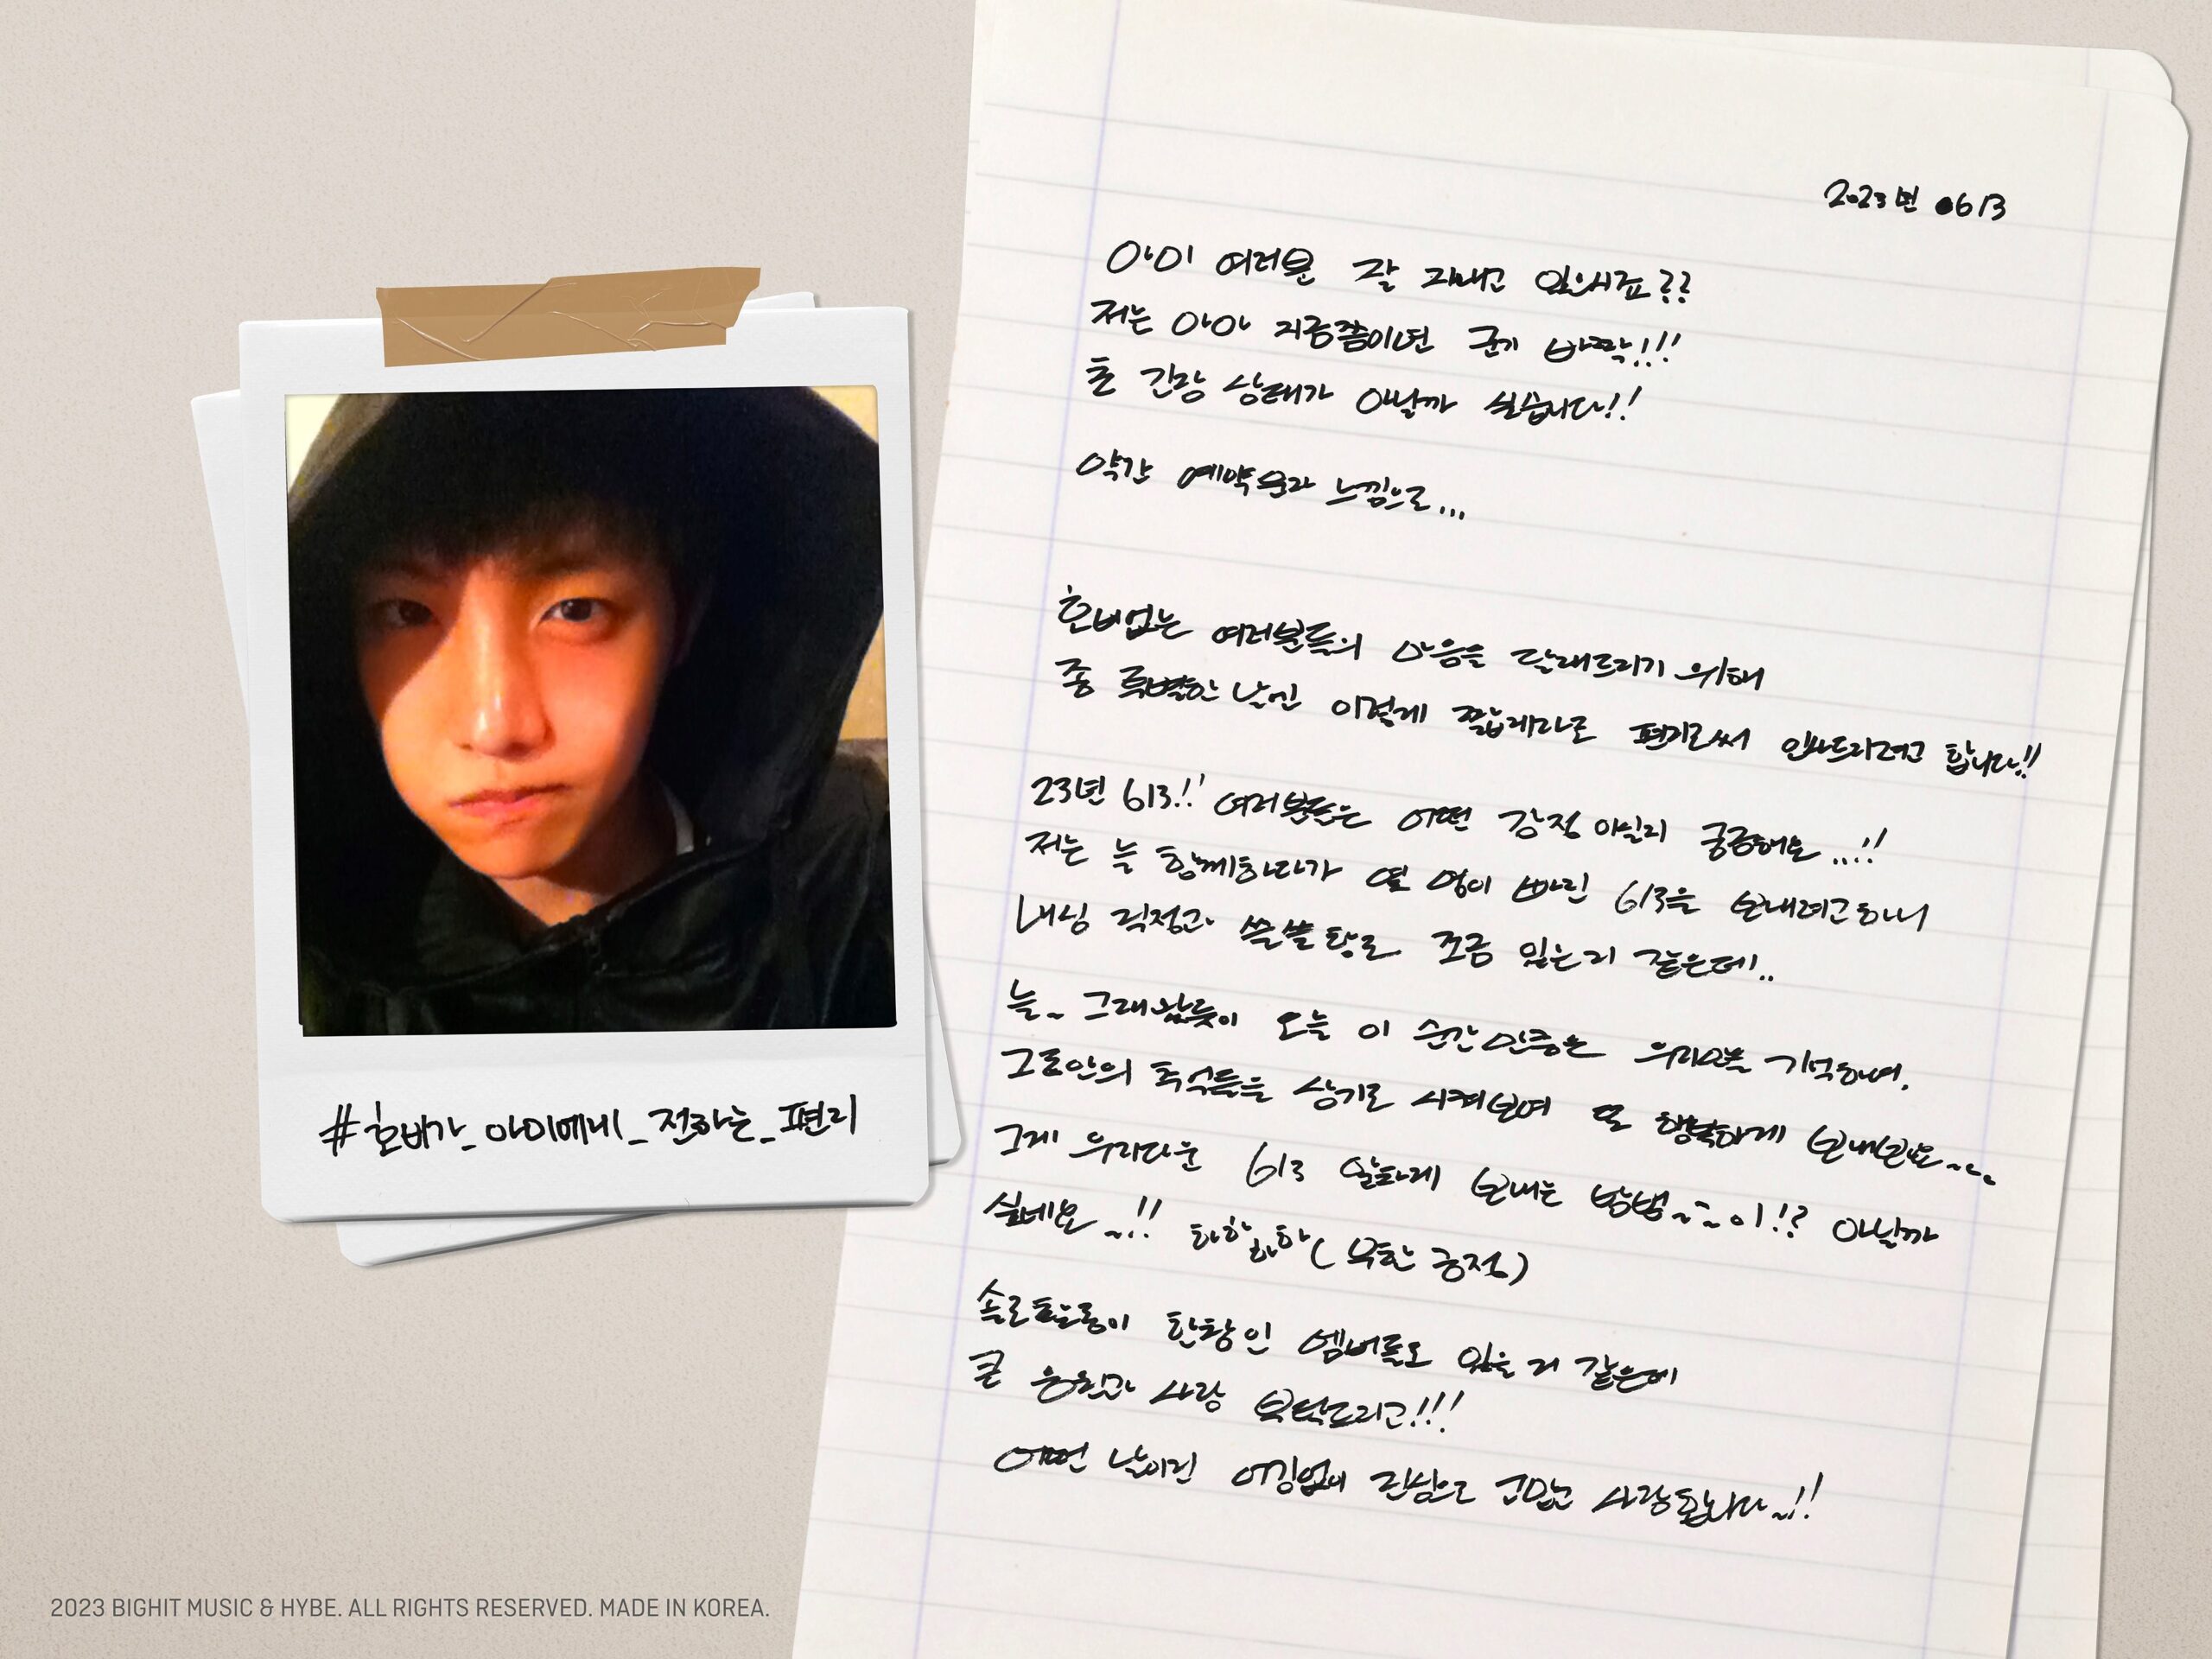 2023년 0613
아미 여러분 잘 지내고 있으시죠??
저는 아마 지금쯤이면 군기 바짝!!!
초 긴장 상태가 아닐까 싶습니다!!
약간 예약문자 느낌으로...
호비없는 여러분들의 마음을 달래드리기 위해
좀 특별한 날인 이렇게 짧게라도 편지로써 인사드리려고 합니다!!
23년 613!! 여러분들은 어떤 감정이실지 궁금해요...!!
저는 늘 함께하다가 몇 명이 빠진 613을 보내려고하니
내심 걱정과 쓸쓸함도 조금 있는거 같은데..
늘~ 그래왔듯이 오늘 이 순간만큼은 우리만을 기억하며,
그동안의 추억들을 상기도 시켜보며 또 행복하게 보내봐요~~~
그게 우리다운 613 알차게 보내는 방법~~~이!? 아닐까
싶네요~!! 하하하하(무한 긍정)
솔로활동이 한창인 멤버들도 있을거 같은데
큰 응원과 사랑 부탁드리고!!!
어떤 날이건 어김없이 진심으로 고맙고 사랑합니다~!!
#호비가_아미에게_전하는_편지
2023 BIGHIT MUSIC & HYBE. ALL RIGHTS RESERVED. MADE IN KOREA.